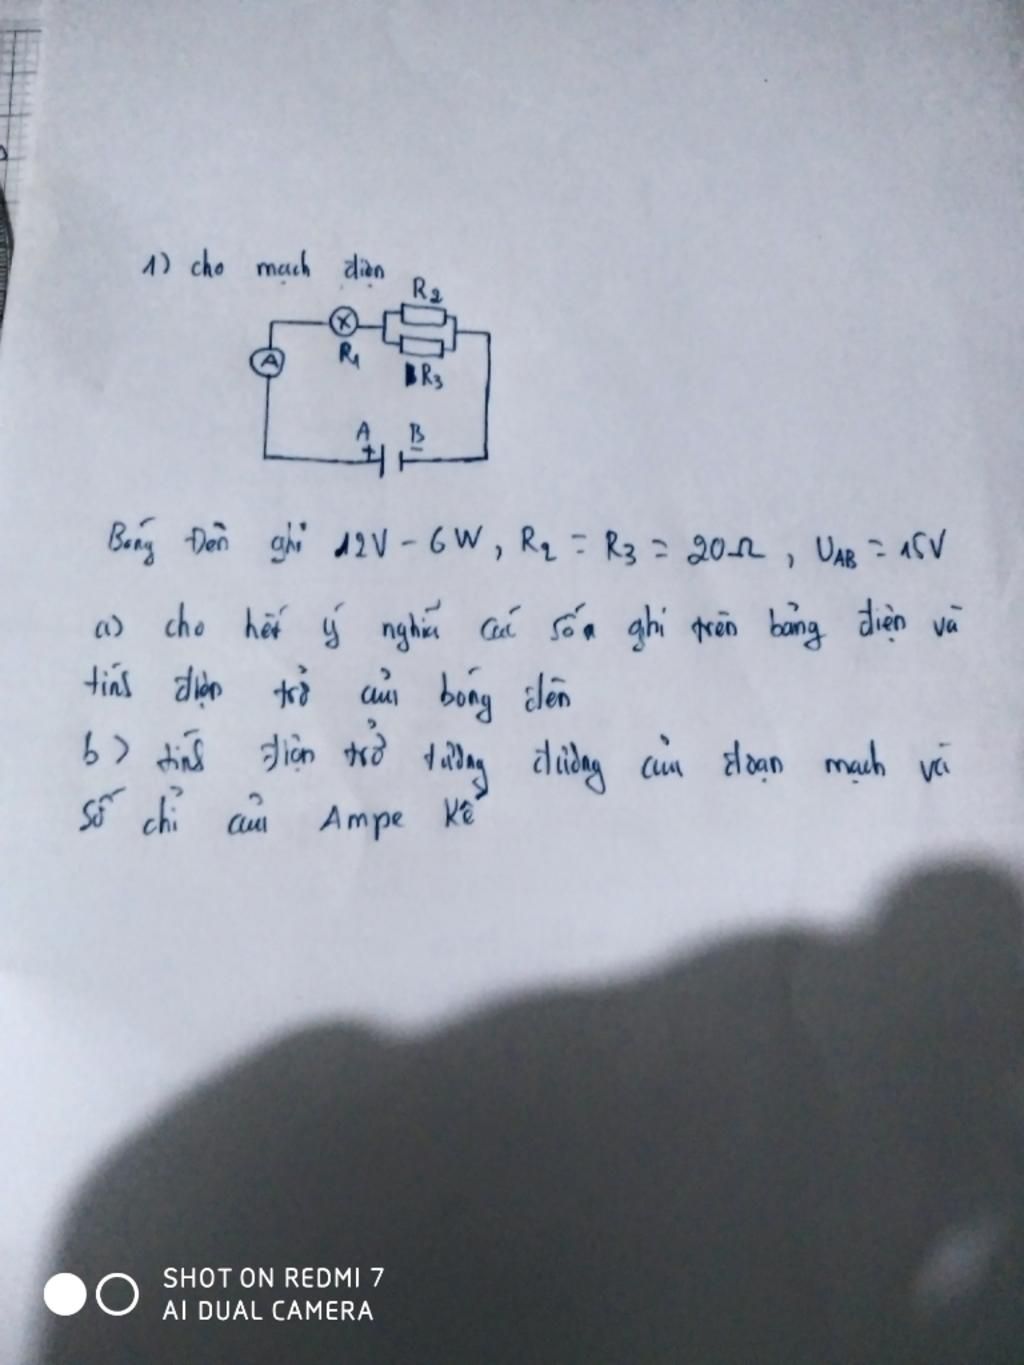 1) cho mạch điện
R2
R1
R3
A
A
B
+
-
Bóng Đèn ghi 12V - 6W, R2 = R3 = 20Ω, UAB = 15V
a) cho hết ý nghĩa các số ghi trên bảng điện và
tính điện trở của bóng đèn
b) tính điện trở tương đương của đoạn mạch và
số chỉ của Ampe Kế
SHOT ON REDMI 7
AI DUAL CAMERA